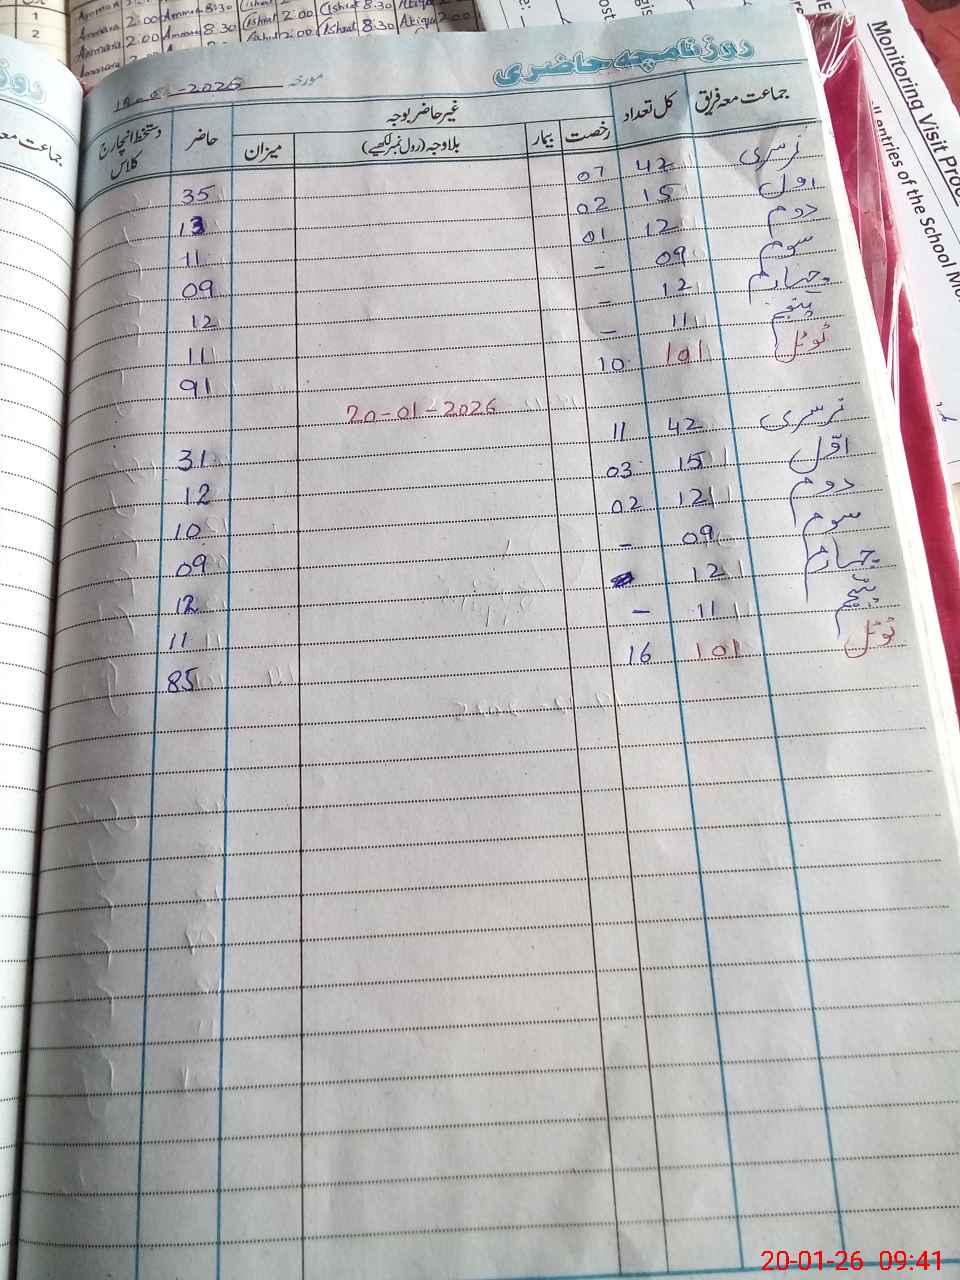 Ammara 2:00 Ammara 8:30 Ishrat 2:00 Ishrat 8:30 Atiqa 2:00
Ammara 2:00 Ammara 8:30 Ishrat 2:00 Ishrat 8:30 Atiqa 2:00
1
2
Monitoring Visit Proc
ll entries of the School Mo
روزنامچہ حاضری
مورخہ -2026
جماعت معہ فریق کل تعداد غیر حاضر بوجہ حاضر دستخط انچارج کلاس
رخصت بیمار بلاوجہ (رول نمبر لکھیے) میزان
نرسری 42 07 35
اول 15 02 13
دوم 12 01 11
سوم 09 - 09
چہارم 12 - 12
پنجم 11 - 11
ٹوٹل 101 10 91
20-01-2026
نرسری 42 11 31
اوّل 15 03 12
دوم 12 02 10
سوم 09 - 09
چہارم 12 12
پنجم 11 - 11
ٹوٹل 101 16 85
20-01-26 09:41